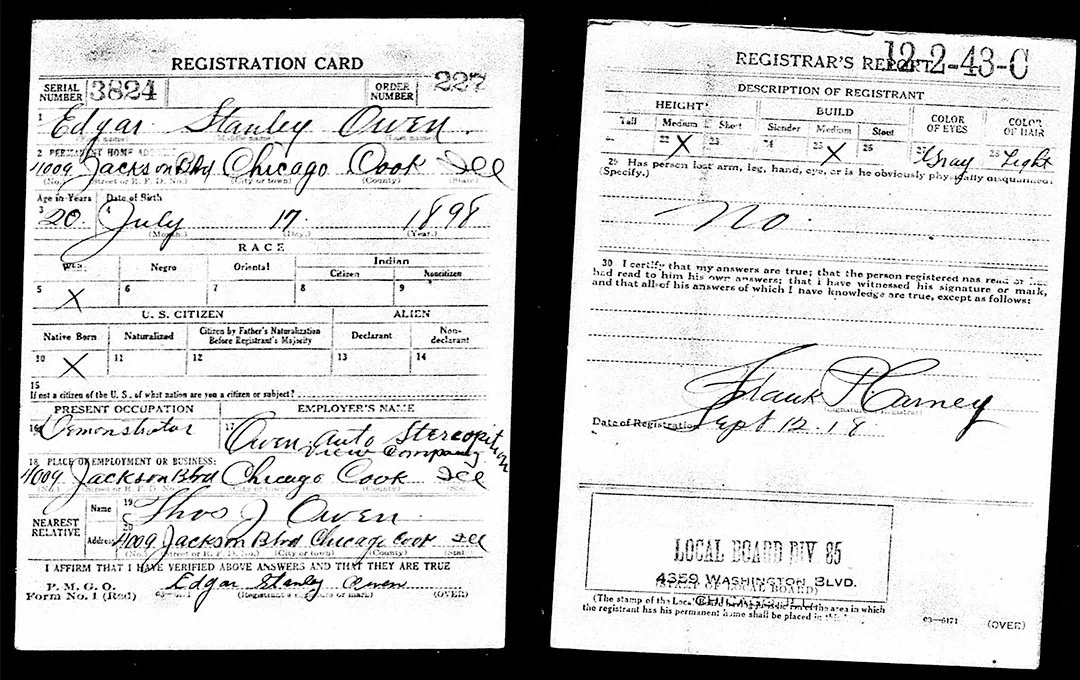 REGISTRATION CARD
SERIAL NUMBER 3824 ORDER NUMBER 227
1 Edgar Stanley Owen
(Middle name) (Last name)
2 PERMANENT HOME ADD
4009 Jackson Blvd Chicago Cook Ill
(No.) (Street or R. F. D. No.) (City or town) (County) (State)
Age in Years Date of Birth
3 20 4 July 17 1898
(Month.) (Day.) (Year.)
RACE
White Negro Oriental Indian
Citizen Noncitizen
5 X 6 7 8 9
U. S. CITIZEN ALIEN
Native Born Naturalized Citizen by Father's Naturalization Before Registrant's Majority Declarant Non-declarant
10 X 11 12 13 14
15
If not a citizen of the U. S., of what nation are you a citizen or subject?
PRESENT OCCUPATION EMPLOYER'S NAME
16 Demonstrator 17 Owen Auto Stereopticon
View Company
18 PLACE OF EMPLOYMENT OR BUSINESS:
4009 Jackson Blvd Chicago Cook Ill
(No.) (Street or R. F. D. No.) (City or town) (County) (State)
NEAREST RELATIVE Name 19 Thos J Owen
20
Address 4009 Jackson Blvd Chicago Cook Ill
(No.) (Street or R. F. D. No.) (City or town) (County) (State)
I AFFIRM THAT I HAVE VERIFIED ABOVE ANSWERS AND THAT THEY ARE TRUE
P. M. G. O.
Form No. 1 (Red) Edgar Stanley Owen
(Registrant's signature or mark) (OVER)
REGISTRAR'S REPORT 12-2-43-C
DESCRIPTION OF REGISTRANT
HEIGHT BUILD COLOR OF EYES COLOR OF HAIR
Tall Medium Short Slender Medium Stout
22 X 23 25 X 26 27 Gray 28 Light
29 Has person lost arm, leg, hand, eye, or is he obviously physically disqualified?
(Specify.)
no.
30 I certify that my answers are true; that the person registered has read or has
had read to him his own answers; that I have witnessed his signature or mark,
and that all of his answers of which I have knowledge are true, except as follows:
Frank P Carney
(Signature of Registrar)
Date of Registration Sept 12. 18
LOCAL BOARD DIV 85
4359 WASHINGTON BLVD.
(STAMP OF LOCAL BOARD)
CHICAGO
(The stamp of the Local Board having jurisdiction of the area in which
the registrant has his permanent home shall be placed in this
03—6171 (OVER)